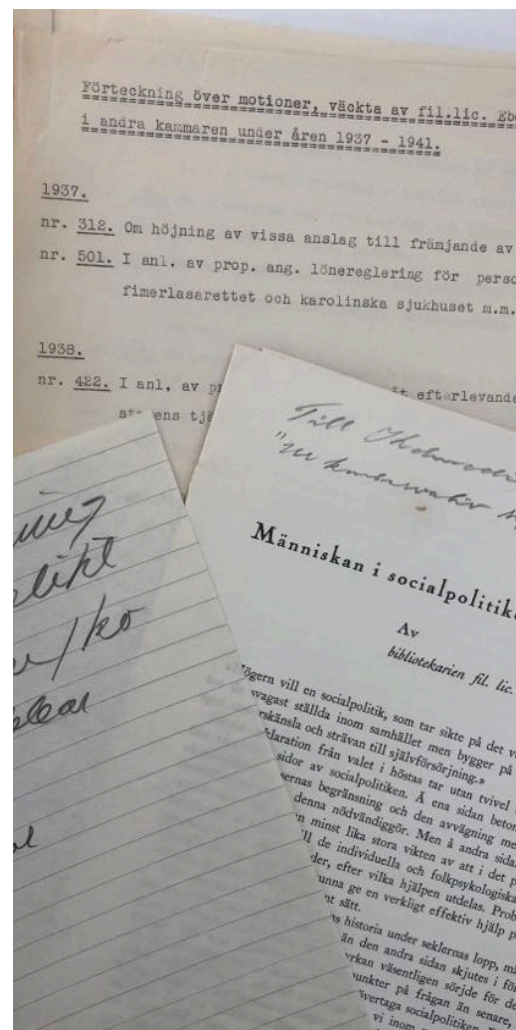 Förteckning över motioner, väckta av fil.lic. Eb
i andra kammaren under åren 1937 - 1941.
1937.
nr. 312. Om höjning av vissa anslag till främjande av
nr. 501. I anl. av prop. ang. lönereglering för perso
fimerlasarettet och karolinska sjukhuset m.m.
1938.
nr. 422. I anl. av p efterlevande
ens tj
Till
Människan i socialpolitike
Av
bibliotekarien fil. lic.
ögern vill en socialpolitik, som tar sikte på det v
svagast ställda inom samhället men bygger på
rskänsla och strävan till självförsörjning.»
klaration från valet i höstas tar utan tvivel
sidor av socialpolitiken. Å ena sidan beton
sernas begränsning och den avvägning me
denna nödvändiggör. Men å andra sida
n minst lika stora vikten av att i det p
ll de individuella och folkpsykologiska
der, efter vilka hjälpen utdelas. Prob
unna ge en verkligt effektiv hjälp p
nt sätt.
s historia under seklernas lopp, må
än den andra sidan skjutes i för
yrkan väsentligen sörjde för de
punkter på frågan än senare,
övertaga socialpolitiken
vi inom